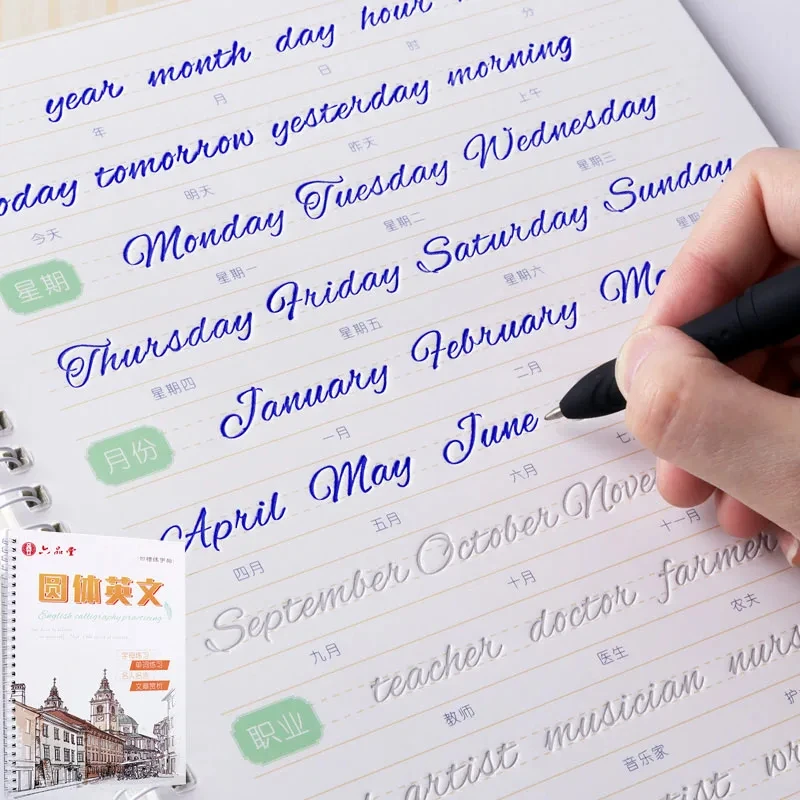 year month day hour
年 月 日 时 分
today tomorrow yesterday morning
今天 明天 昨天 上午
星期
Monday Tuesday Wednesday
星期一 星期二 星期三
Thursday Friday Saturday Sunday
星期四 星期五 星期六 星期
月份
January February Ma
一月 二月
April May June
四月 五月 六月 七
September October Nove
九月 十月 十一月
职业
teacher doctor farmer
教师 医生 农夫
artist musician nurs
音乐家 护
六品堂
圆体英文
English calligraphy practicing
字母练习
单词练习
名人名言
文章赏析